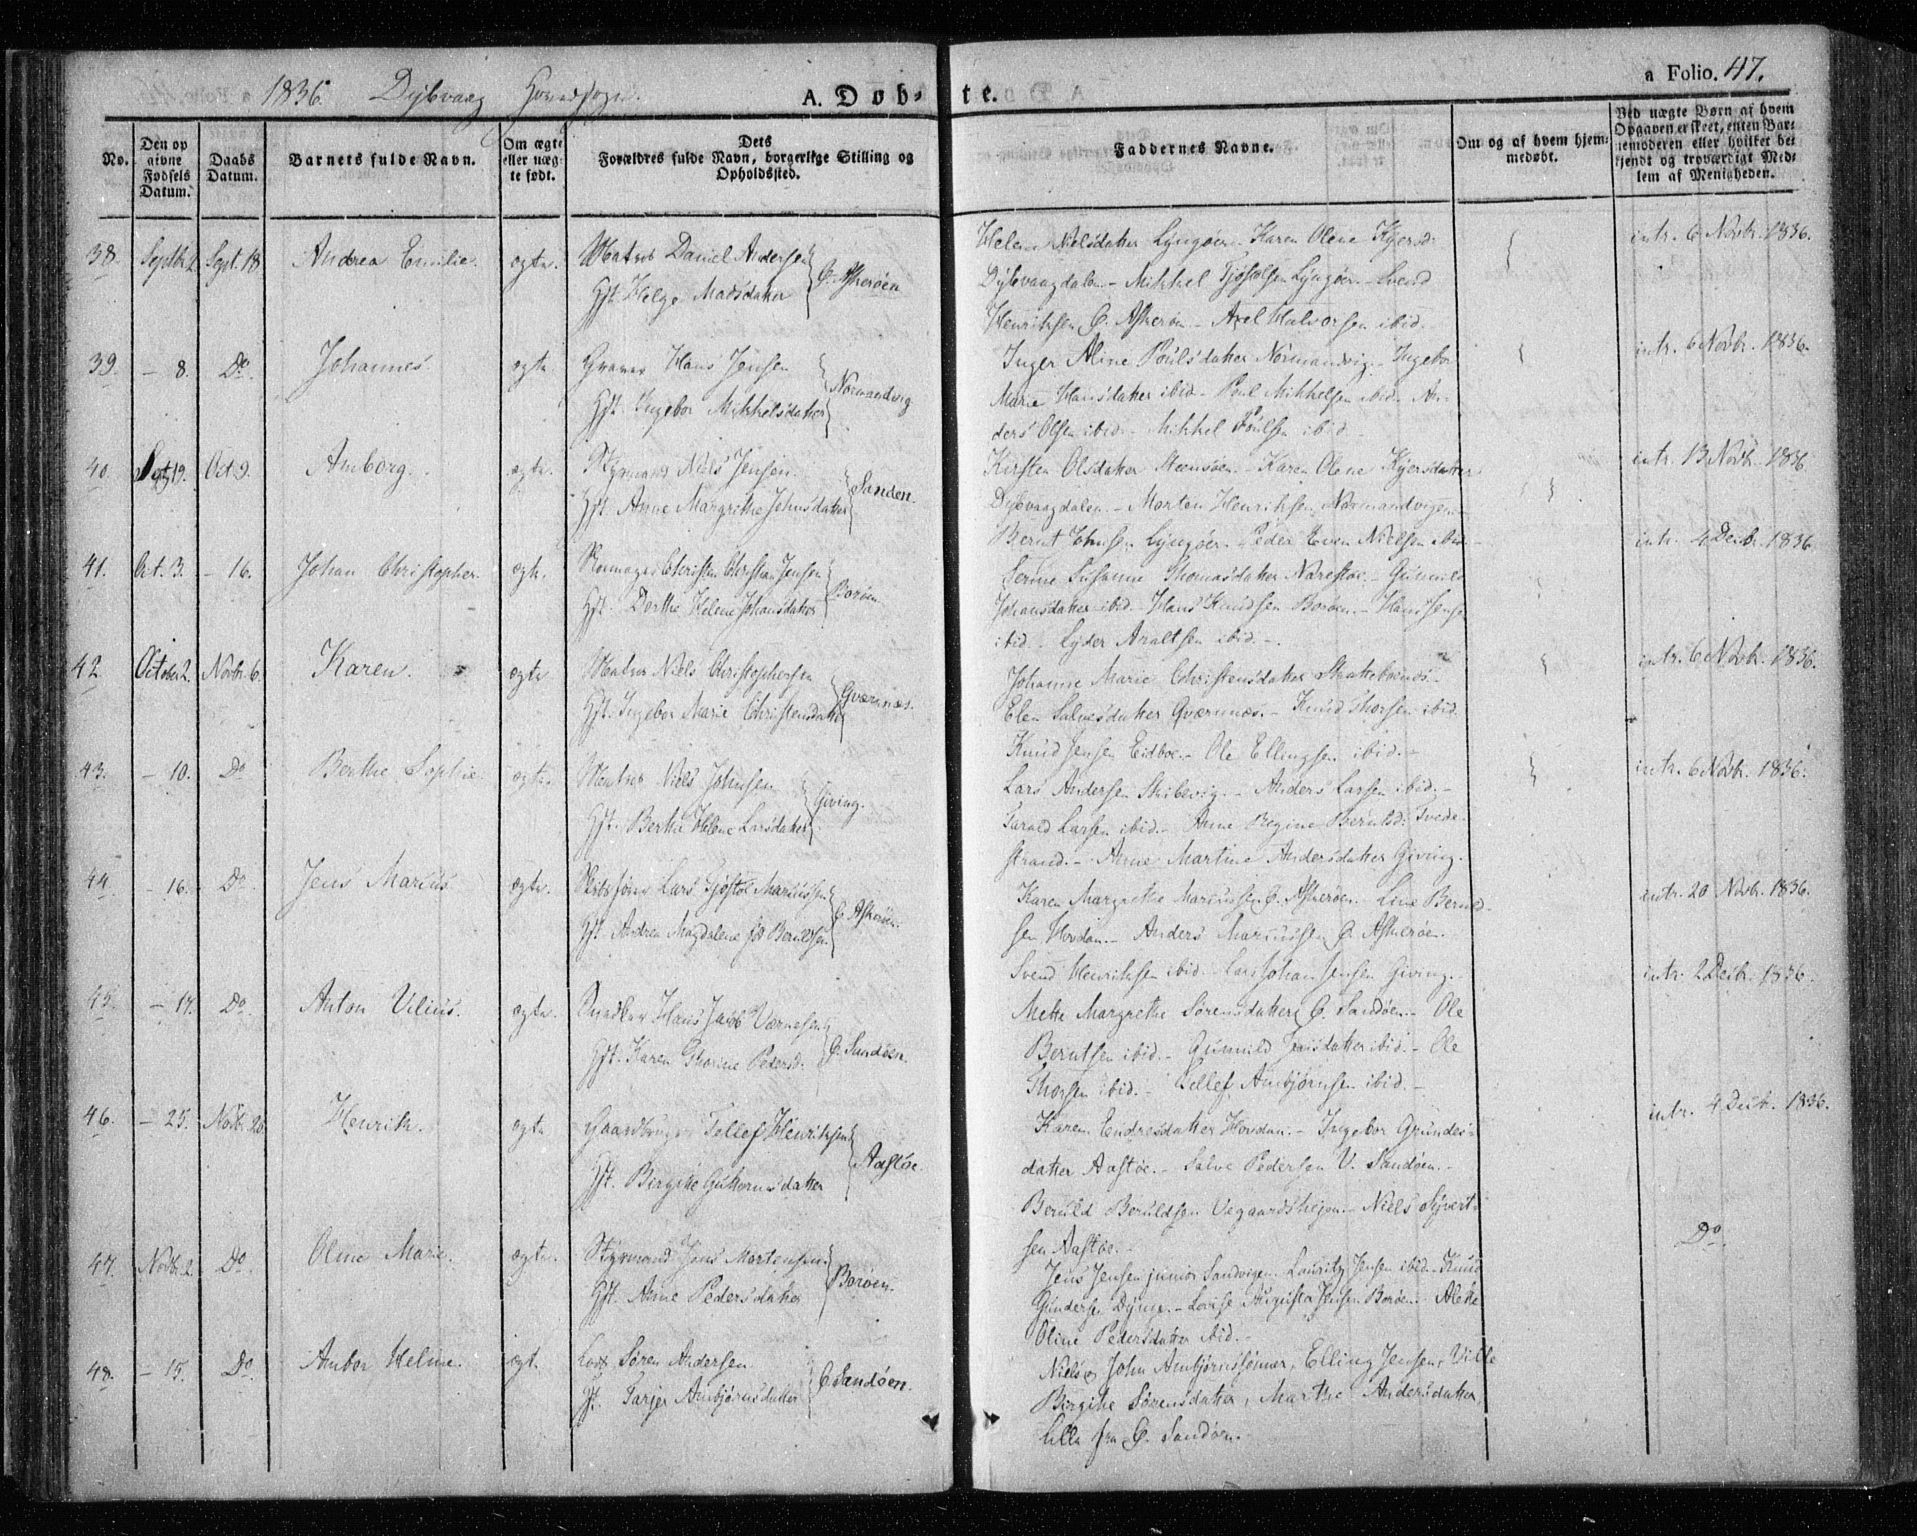 1836. Dybvaag Hovedsogn.
A. Døb-
te.
a Folio. 47.
No.
Den op
givne
Fødsels
Datum.
Daabs
Datum.
Barnets fulde Navn.
Om ægte
eller uæg-
te født.
Dets
Forældres fulde Navn, borgerlige Stilling og
Opholdssted.
Faddernes Navne.
Om og af hvem hjem-
medøbt.
Ved uægte Børn af hvem
Opgaven er skeet, enten Bar-
nemoderen eller hvilket be-
kjendt og troværdigt Med-
lem af Menigheden.
38. Septbr. 2. Sept. 18 Andrea Emilie. ægte. Matros Daniel Andersen
Hst. Helge Madsdatter
O. Askerøen
Helene Nielsdatter Lyngøer. - Karen Olene Kjersd:
Dybvaagdalen. - Mikkel Lyngøer. - Svend
Henriksen O. Askerøn. - Axel Halvorsen ibid. -
intr. 6 Novbr. 1836.
39. - 8. Do. Johannes ægte Hans Jensen
Hst. Ingebor Mikkelsdatter
Normandvig
Inger Aline Poulsdatter Normandvig. - Ingebor
Marie Hansdatter ibid. - Poul Mikkelsen ibid. An-
ders Olsen ibid. - Mikkel Poulsen ibid. -
intr. 6 Novbr. 1836.
40. Sept 19. Oct. 9. Amborg. ægte. Styrmand Niels Jensen.
Hst. Anne Margrethe Johnsdatter
Sanden.
Kirsten Olsdatter - Karen Olene Kjersdatter
Dybvaagdalen. - Morten Henriksen, Normandvigen. -
Bernt Johnsen Lyngøer. Peder Even Nielsen ibid. -
intr. 13 Novbr. 1836
41. Oct. 3. - 16. Johan Christopher. ægte. Christen Christian Jensen
Hst. Dorthe Helene Johansdatter
Borøen.
Serine Susanne Thomasdatter Narestøe. - Gunnild
Johansdatter ibid. - Hans Knudsen Borøen. - Hans Jensen
ibid. - Lyder Araltsen ibid. -
intr. 4 Decb. 1836
42 October 2. Novbr. 6. Karen. ægte Matros Niels Christophersen
Hst. Ingebor Marie Christensdatter
Qværnnæs.
Johanne Marie Christensdatter
Elen Salvesdatter Qværnnæs. - Knud Thorsen ibid.
Knud Jensen Eidboe. - Ole Ellingsen ibid. -
intr. 6 Novbr. 1836.
43. - 10. Do Berthe Sophie. ægte. Matros Niels Johnsen
Hst. Berthe Helene Larsdatter
Giving.
Lars Andersen Skibevig. - Anders Larsen ibid. -
Tarald Larsen ibid. - Anne Regine Beruldsd: Tvede-
strand. - Anne Martine Andersdatter Giving.
intr. 6 Novbr. 1836.
44. - 16. Do. Jens Marius ægte. Lars Mariussen
Hst. Andrea Magdalene Beruldsen
O. Askerøen.
Karen Margrethe Mariussen O. Askerøen. Line Beruld-
sen Hovdan. - Anders Mariussen O. Askerøe.
Svend Henriksen ibid. - Lars Johan Jensen Giving. -
intr. 20 Novb. 1836.
45. - 17. Do. Anton Vilius. ægte. Snedker Hans Jacob
Hst. Karen Thorine Pedersd:
O. Sandøen.
Mette Margrethe Sørensdatter O. Sandøen. - Ole
Berntsen ibid. - Gunnild ibid. - Ole
Thorsen ibid. - Tellef Ambjørnsen ibid. -
intr. 2 Decb. 1836.
46. - 25. Novb. 20 Henrik. ægte Gaardbruger Tellef Henriksen
Hst. Birgithe Guttormsdatter
Aastøe.
Karen Endresdatter Hovdan. - Ingebor Grundes-
datter Aastøe. - Salve Pedersen V. Sandøen. -
Beruld Beruldsen Vegaardshejen. - Niels Syvert-
sen Aastøe. -
intr. 4 Decb. 1836.
47. Novbr. 2. Do. Oline Marie. ægte. Styrmand Jens Mortensen
Hst. Anne Pedersdatter
Borøen.
Jens Jensen junior Sandvigen. Lauritz Jensen ibid. - Knud
Gundersen Dynge. - Lovise Augusta Jensen Borøen. - Alette
Oline Pedersdatter ibid. -
Do.
48. - 15. Do. Ambor Helene. ægt. Lods Søren Andersen.
Hst. Tarjer Ambjørnsdatter
O. Sandøen.
Niels & John Ambjørnssønner, Elling Jensen,
Birgithe Sørensdatter, Marthe Andersdatter,
alle fra O. Sandøen.